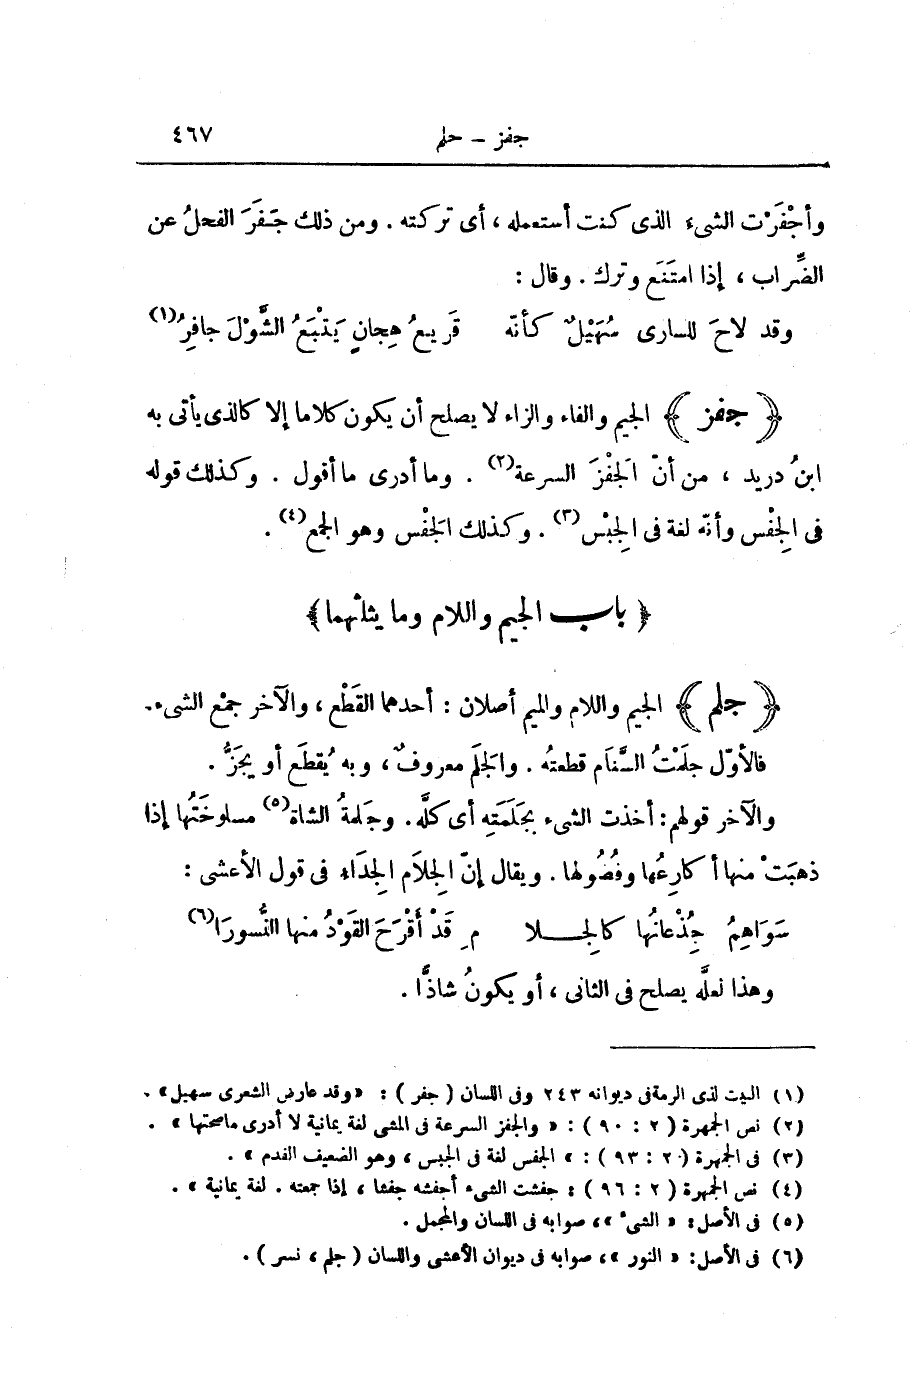 جفز – حلم ٤٦٧
وأجْفَرْت الشىء الذى كنت أستعمله ، أى تركته . ومن ذلك جَفَرَ الفحلُ عن
الضِّراب ، إذا امتَنَع وترك . وقال :
وقد لاحَ للسارى سُهَيْلٌ كأنّه قَريعُ هِجانٍ يَتْبَعُ الشَّوْلَ جافِرُ(١)
﴿ جفز ﴾ الجيم والفاء والزاء لا يصلح أن يكون كلاما إلا كالذى يأتى به
ابنُ دريد ، من أنّ الجَفْزَ السرعة(٢) . وما أدرى ما أقول . وكذلك قوله
فى الجِفْس وأنّه لغة فى الجِبْس(٣) . وكذلك الجَفْس وهو الجمع(٤) .
﴿ باب الجيم واللام وما يثلثهما ﴾
﴿ جلم ﴾ الجيم واللام والميم أصلان : أحدهما القَطْع ، والآخر جمْع الشىء .
فالأوّل جلَمْتُ السَّنَام قطعتُه . والجَلَم معروفٌ ، وبه يُقطَع أو يجَزُّ .
والآخر قولهم : أخذت الشىء بجَلَمَتِه أى كلَّه . وجَلَمةُ الشاة(٥) مسلوخَتُها إذا
ذهبَتْ منها أكارِعُها وفُضُولها . ويقال إنّ الجِلاَم الجِدَاء فى قول الأعشى :
سَوَاهِمُ جُِذْعانُها كالجِلا مِ قَدْ أَقْرَحَ القَوْدُ منها النُّسورَا(٦)
وهذا لعلَّه يصلح فى الثانى ، أو يكونُ شاذًّا .
(١) البيت لذى الرمة فى ديوانه ٢٤٣ وفى اللسان ( جفر ) : « وقد عارض الشعرى سهيل » .
(٢) نص الجمهرة ( ٢ : ٩٠ ) : « والجفز السرعة فى المشى لغة يمانية لا أدرى ما صحتها » .
(٣) فى الجمهرة ( ٢ : ٩٣ ) : « الجفس لغة فى الجبس ، وهو الضعيف الفدم » .
(٤) نص الجمهرة ( ٢ : ٩٦ ) : جفشت الشىء أجفشه جفشا ، إذا جمعته . لغة يمانية » .
(٥) فى الأصل : « الشىء » ، صوابه فى اللسان والمجمل .
(٦) فى الأصل : « النور » ، صوابه فى ديوان الأعشى واللسان ( جلم ، نسر ) .